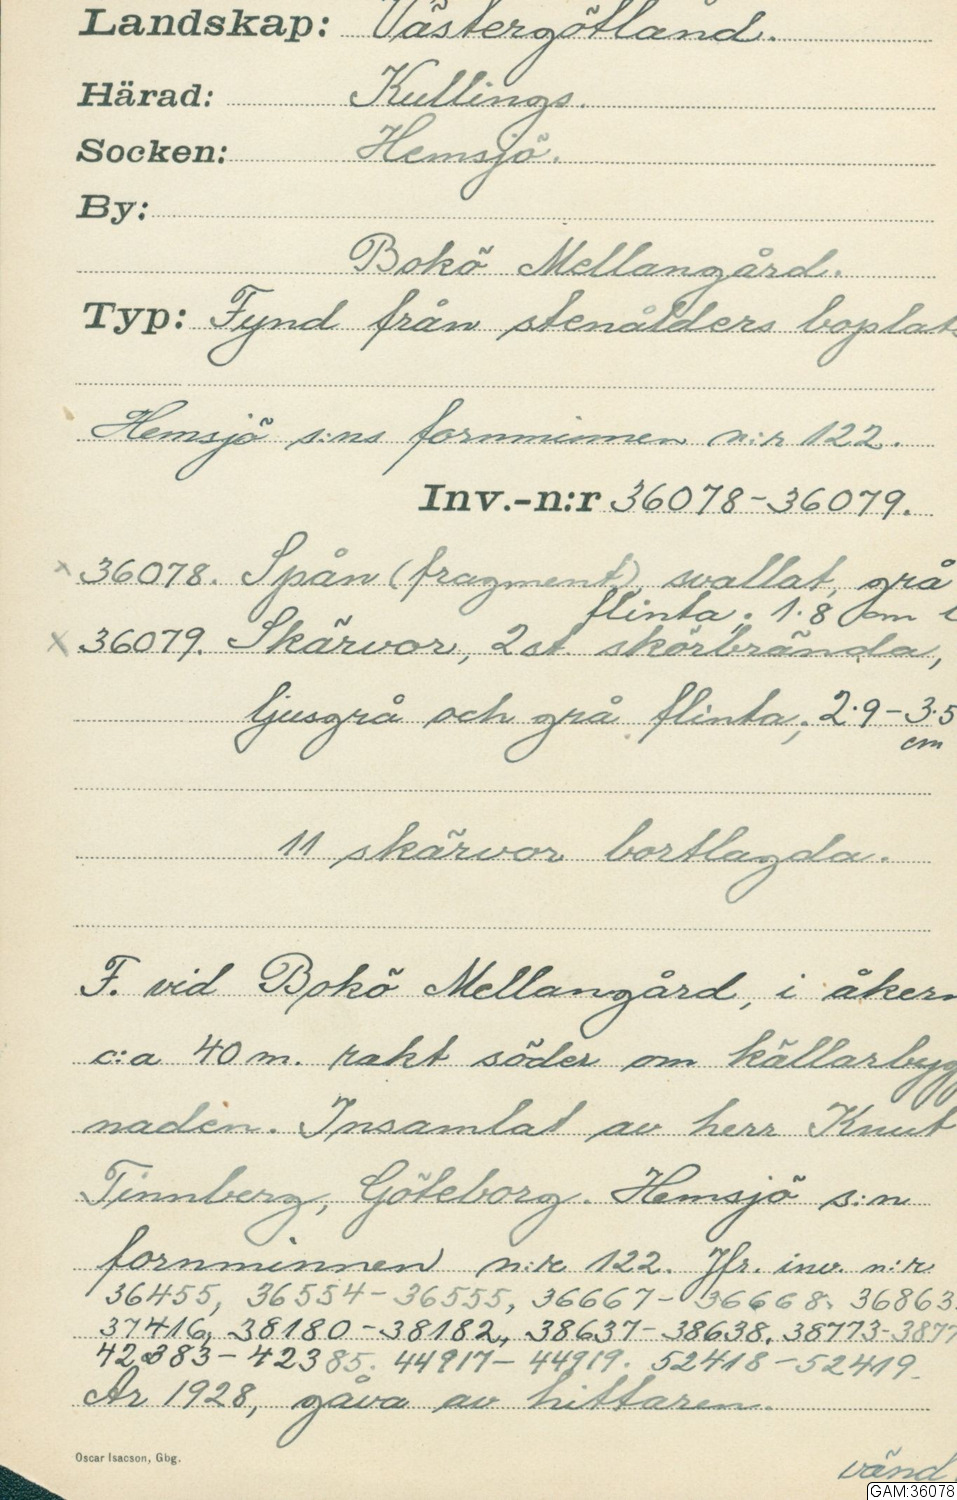 Landskap: Västergötland.
Härad: Kullings.
Socken: Hemsjö.
By:
Bokö Mellangård.
Typ: Fynd från stenålders boplats
Hemsjö s:ns fornminnen n:r 122.
Inv.-n:r 36078-36079.
x 36078. Spån (fragment) svallat, grå
flinta; 1.8 cm
x 36079. Skärvor, 2 st. skörbrända,
ljusgrå och grå flinta; 2.9-3.5
cm
11 skärvor bortlagda.
F. vid Bokö Mellangård, i åkern
c:a 40 m. rakt söder om källarbygg
naden. Insamlat av herr Knut
Tinnberg, Göteborg. Hemsjö s:n
fornminnen n:r 122. Jfr. inv. n:r
36455, 36554-36555, 36667-36668. 36863.
37416, 38180-38182, 38637-38638. 38773-3877
42383-42385. 44917-44919. 52418-52419.
År 1928, gåva av hittaren.
Oscar Isacson, Gbg.
vänd
GAM:36078